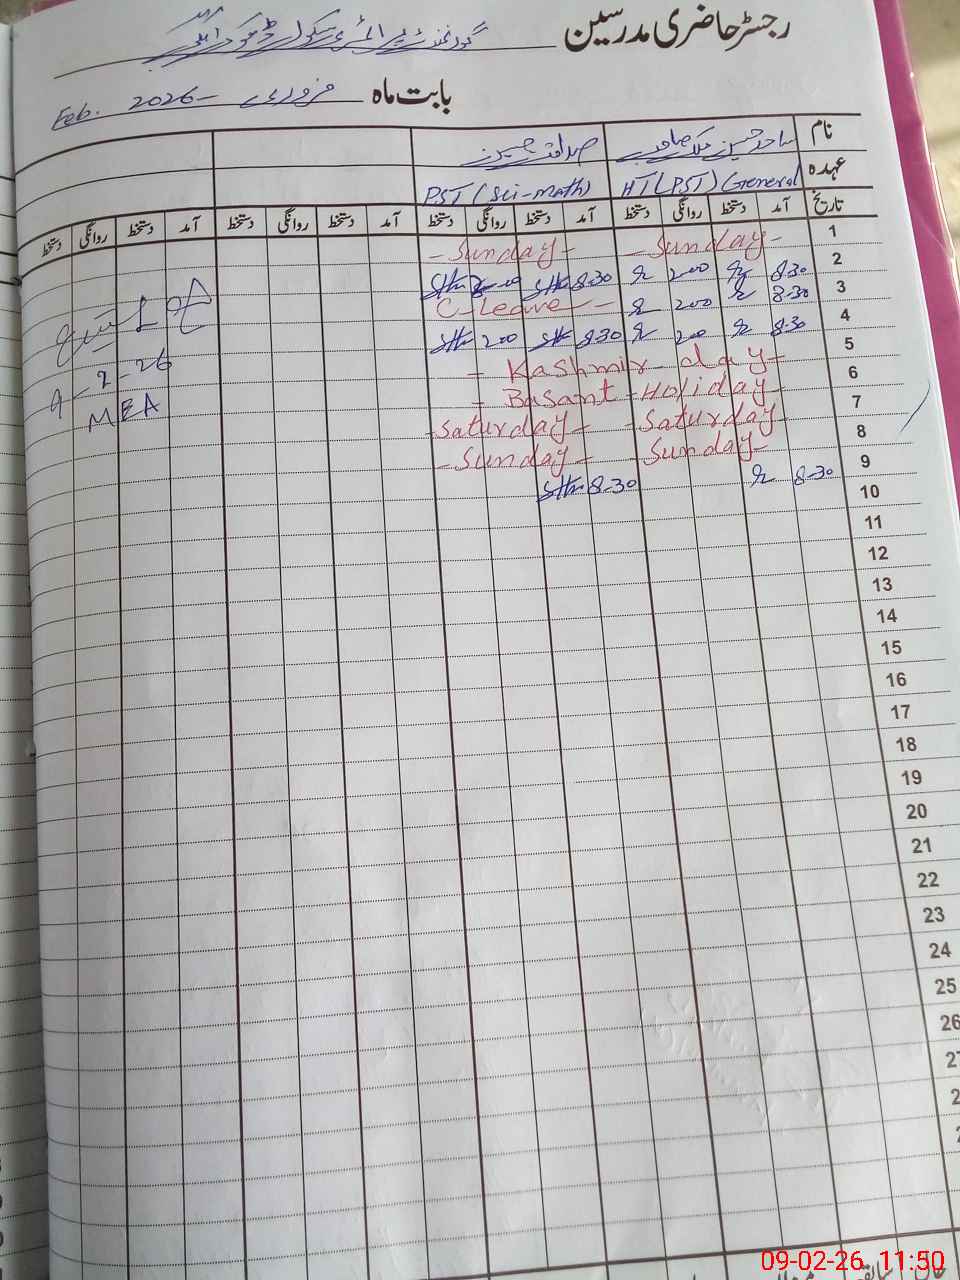 رجسٹر حاضری مدرسین گورنمنٹ پرائمری سکول
بابت ماہ فروری 2026 Feb.
نام ساجد حسین ملک صاحب صداقت حسین
عہدہ HT (PST) General PST (Sci-math)
تاریخ آمد دستخط روانگی دستخط آمد دستخط روانگی دستخط آمد دستخط روانگی دستخط آمد دستخط روانگی دستخط
1 - Sunday - - Sunday -
2 8.30 200 8.30
3 8.30 200 C-leave -
4 8.30 200 8.30 200
5 - Kashmir - day -
6 - Basant - Holiday -
7 - Saturday - - Saturday -
8 - Sunday - - Sunday -
9 8.30 8.30
10
11
12
13
14
15
16
17
18
19
20
21
22
23
24
25
26
9-2-26
MEA
09-02-26 11:50